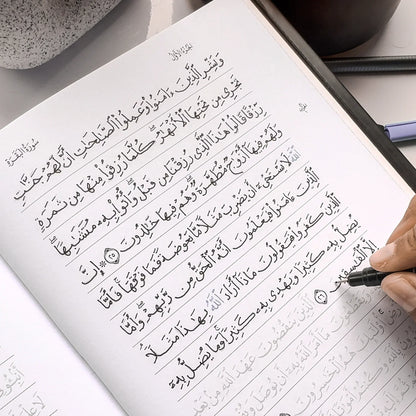 الجزء الأول
سورة البقرة
وَبَشِّرِ ٱلَّذِينَ ءَامَنُوا۟ وَعَمِلُوا۟ ٱلصَّٰلِحَٰتِ أَنَّ لَهُمْ جَنَّٰتٍ
تَجْرِى مِن تَحْتِهَا ٱلْأَنْهَٰرُ ۖ كُلَّمَا رُزِقُوا۟ مِنْهَا مِن ثَمَرَةٍ
رِّزْقًا ۙ قَالُوا۟ هَٰذَا ٱلَّذِى رُزِقْنَا مِن قَبْلُ ۖ وَأُتُوا۟ بِهِۦ مُتَشَٰبِهًا ۖ
وَلَهُمْ فِيهَآ أَزْوَٰجٌ مُّطَهَّرَةٌ ۖ وَهُمْ فِيهَا خَٰلِدُونَ ٢٥ ۞ إِنَّ
ٱللَّهَ لَا يَسْتَحْىِۦٓ أَن يَضْرِبَ مَثَلًا مَّا بَعُوضَةً فَمَا فَوْقَهَا ۚ فَأَمَّا
ٱلَّذِينَ ءَامَنُوا۟ فَيَعْلَمُونَ أَنَّهُ ٱلْحَقُّ مِن رَّبِّهِمْ ۖ وَأَمَّا
ٱلَّذِينَ كَفَرُوا۟ فَيَقُولُونَ مَاذَآ أَرَادَ ٱللَّهُ بِهَٰذَا مَثَلًا ۘ
يُضِلُّ بِهِۦ كَثِيرًا وَيَهْدِى بِهِۦ كَثِيرًا ۚ وَمَا يُضِلُّ بِهِۦٓ
إِلَّا ٱلْفَٰسِقِينَ ٢٦
ٱلَّذِينَ يَنقُضُونَ عَهْدَ ٱللَّهِ مِنۢ بَعْدِ
مَآ أَمَرَ ٱللَّهُ بِهِۦٓ أَن يُوصَلَ